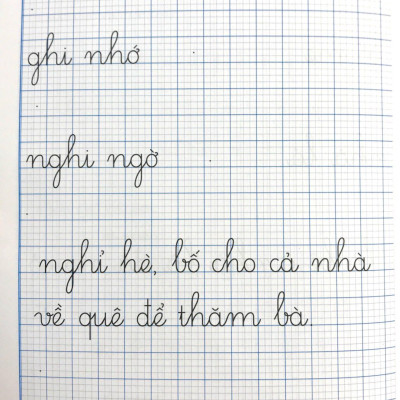 ghi nhớ
nghi ngờ
nghỉ hè, bố cho cả nhà
về quê để thăm bà.